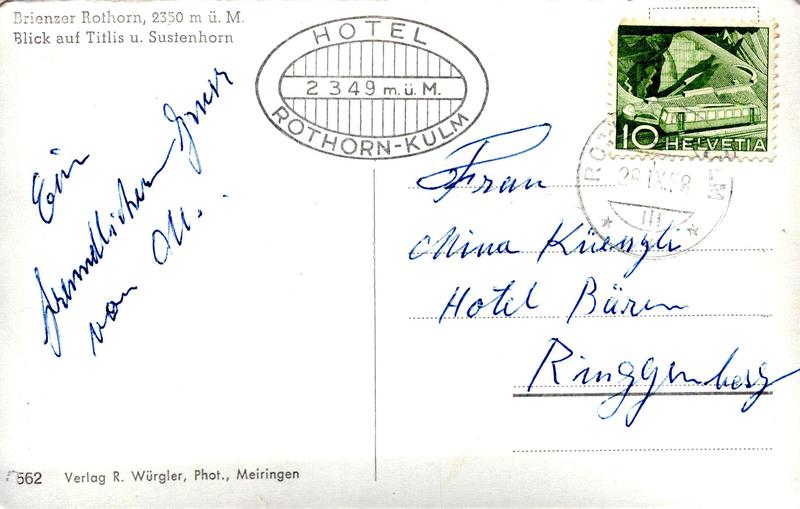 Brienzer Rothorn, 2350 m ü. M.
Blick auf Titlis u. Sustenhorn
HOTEL
2349 m.ü.M.
ROTHORN-KULM
10 HELVETIA
Ein
freundlichen Gruss
von
Frau
Mina Küenzli
Hotel Bären
Ringgenberg
562 Verlag R. Würgler, Phot., Meiringen